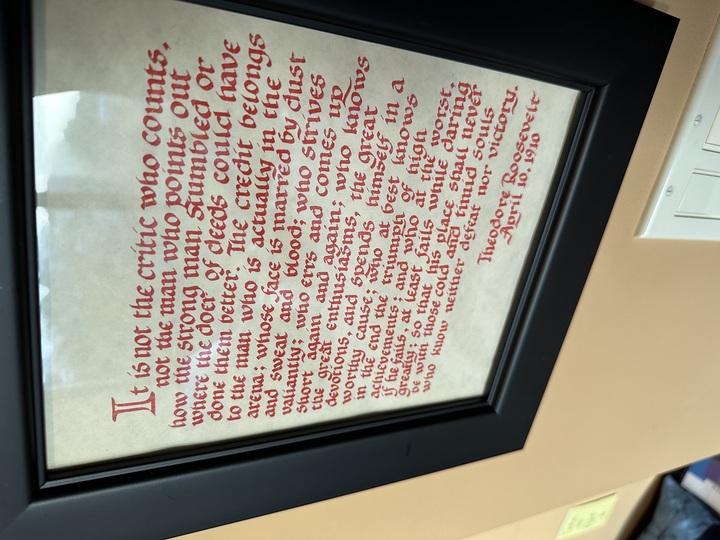 It is not the critic who counts,
not the man who points out
how the strong man stumbled or
where the doer of deeds could have
done them better. The credit belongs
to the man who is actually in the
arena; whose face is marred by dust
and sweat and blood; who strives
valiantly; who errs and comes up
short again and again; who knows
the great enthusiasms, the great
devotions, and spends himself in a
worthy cause; who at best knows
in the end the triumph of high
achievements; and who at the worst,
if he fails, at least fails while daring
greatly; so that his place shall never
be with those cold and timid souls
who know neither defeat nor victory.
Theodore Roosevelt
April 10, 1910